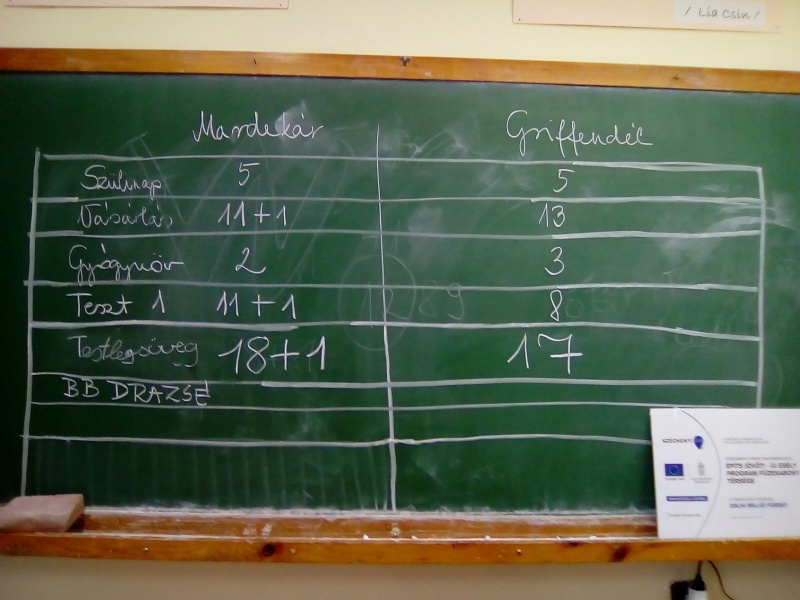 / Lia Csin /
Mardekár Griffendél
Szülinap 5 5
Vásárlás 11+1 13
Gyógynöv 2 3
Teszt 1 11+1 8
Testlegsüveg 18+1 17
BB DRAZSÉ
SZÉCHENYI
ÉPÍTS JÖVŐT! - ÚJ ESÉLY
PROGRAM FÜZESABONY
TÉRSÉGE